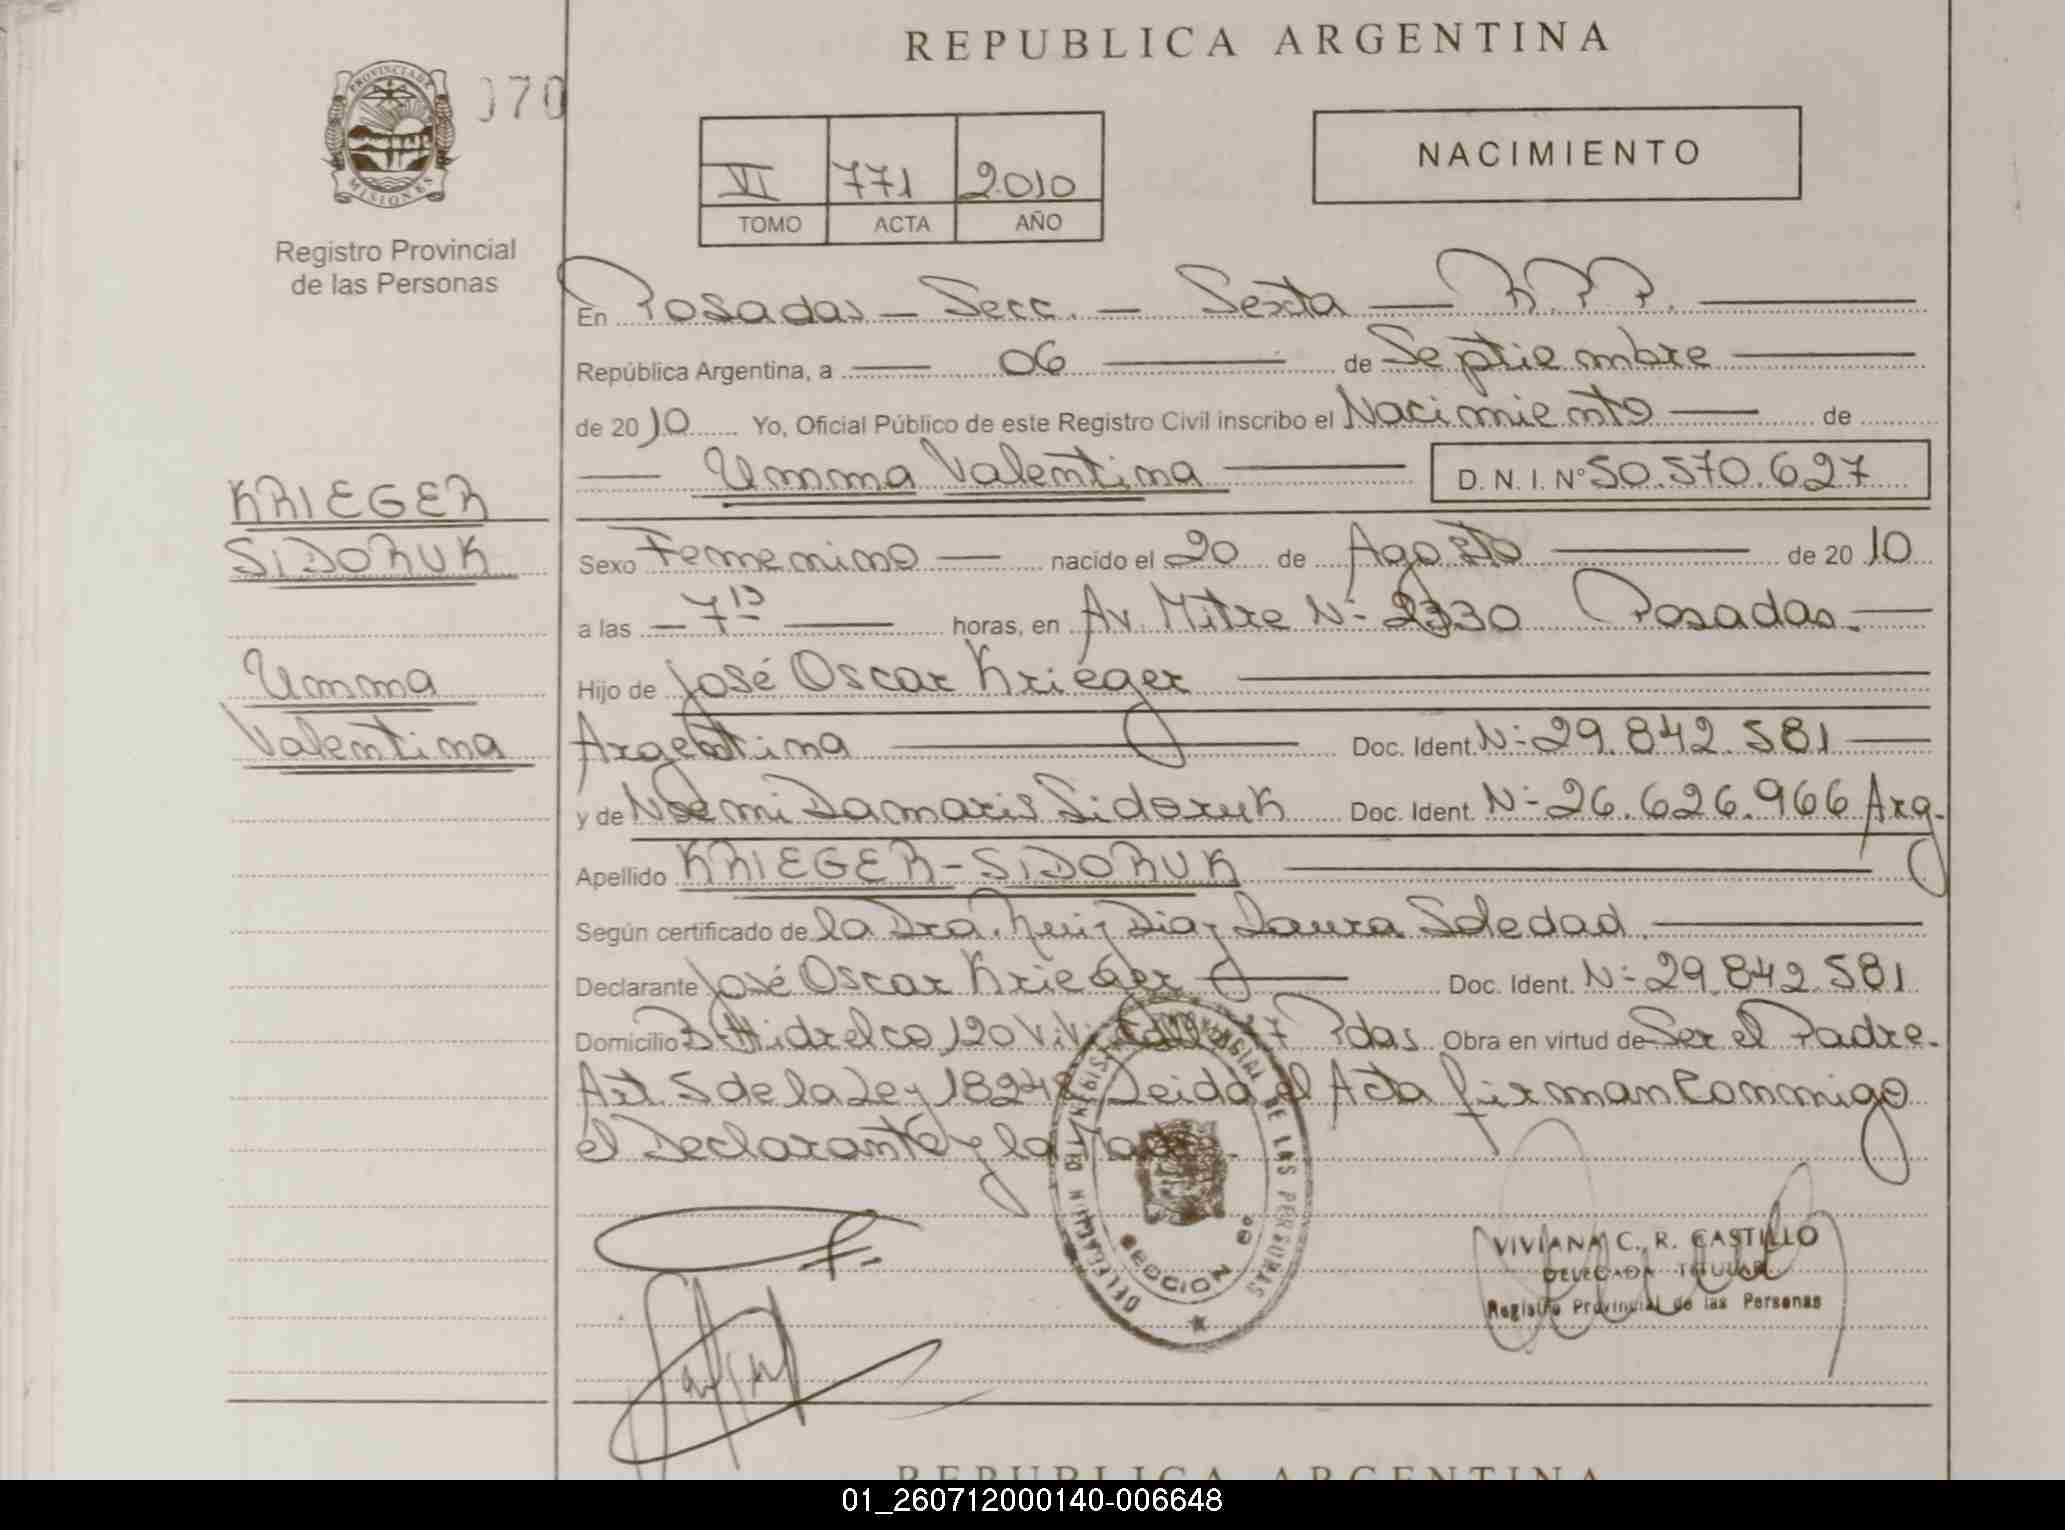 REPUBLICA ARGENTINA
PROVINCIA DE MISIONES
070
Registro Provincial
de las Personas
VI 771 2010
TOMO ACTA AÑO
NACIMIENTO
En Posadas - Secc. - Sexta - R.P.P.
República Argentina, a 06 de Septiembre
de 2010 Yo, Oficial Público de este Registro Civil inscribo el Nacimiento de
Umma Valentina D. N. I. Nº 50.570.627
KRIEGER
SIDORUK
Umma
Valentina
Sexo Femenino nacido el 20 de Agosto de 2010
a las 7 15 horas, en Av. Mitre Nº 2330 Posadas.
Hijo de José Oscar Krieger
Argentina Doc. Ident. Nº 29.842.581
y de Noemi Damaris Sidoruk Doc. Ident. Nº 26.626.966 Arg.
Apellido KRIEGER-SIDORUK
Según certificado de la Dra. Diaz Laura Soledad
Declarante José Oscar Krieger Doc. Ident. Nº 29.842.581
Domicilio Bº Hidrelco, 120 Viv. Pdas. Obra en virtud de Ser el Padre.
Art. 5 de la Ley 18248 Leida el Acta firman Conmigo
el Declarante y la
DELEGACION REGISTRO PROVINCIAL DE LAS PERSONAS
SECCION 6º
VIVIANA C. R. CASTILLO
DELEGADA TITULAR
Registro Provincial de las Personas
REPUBLICA ARGENTINA
01_260712000140-006648